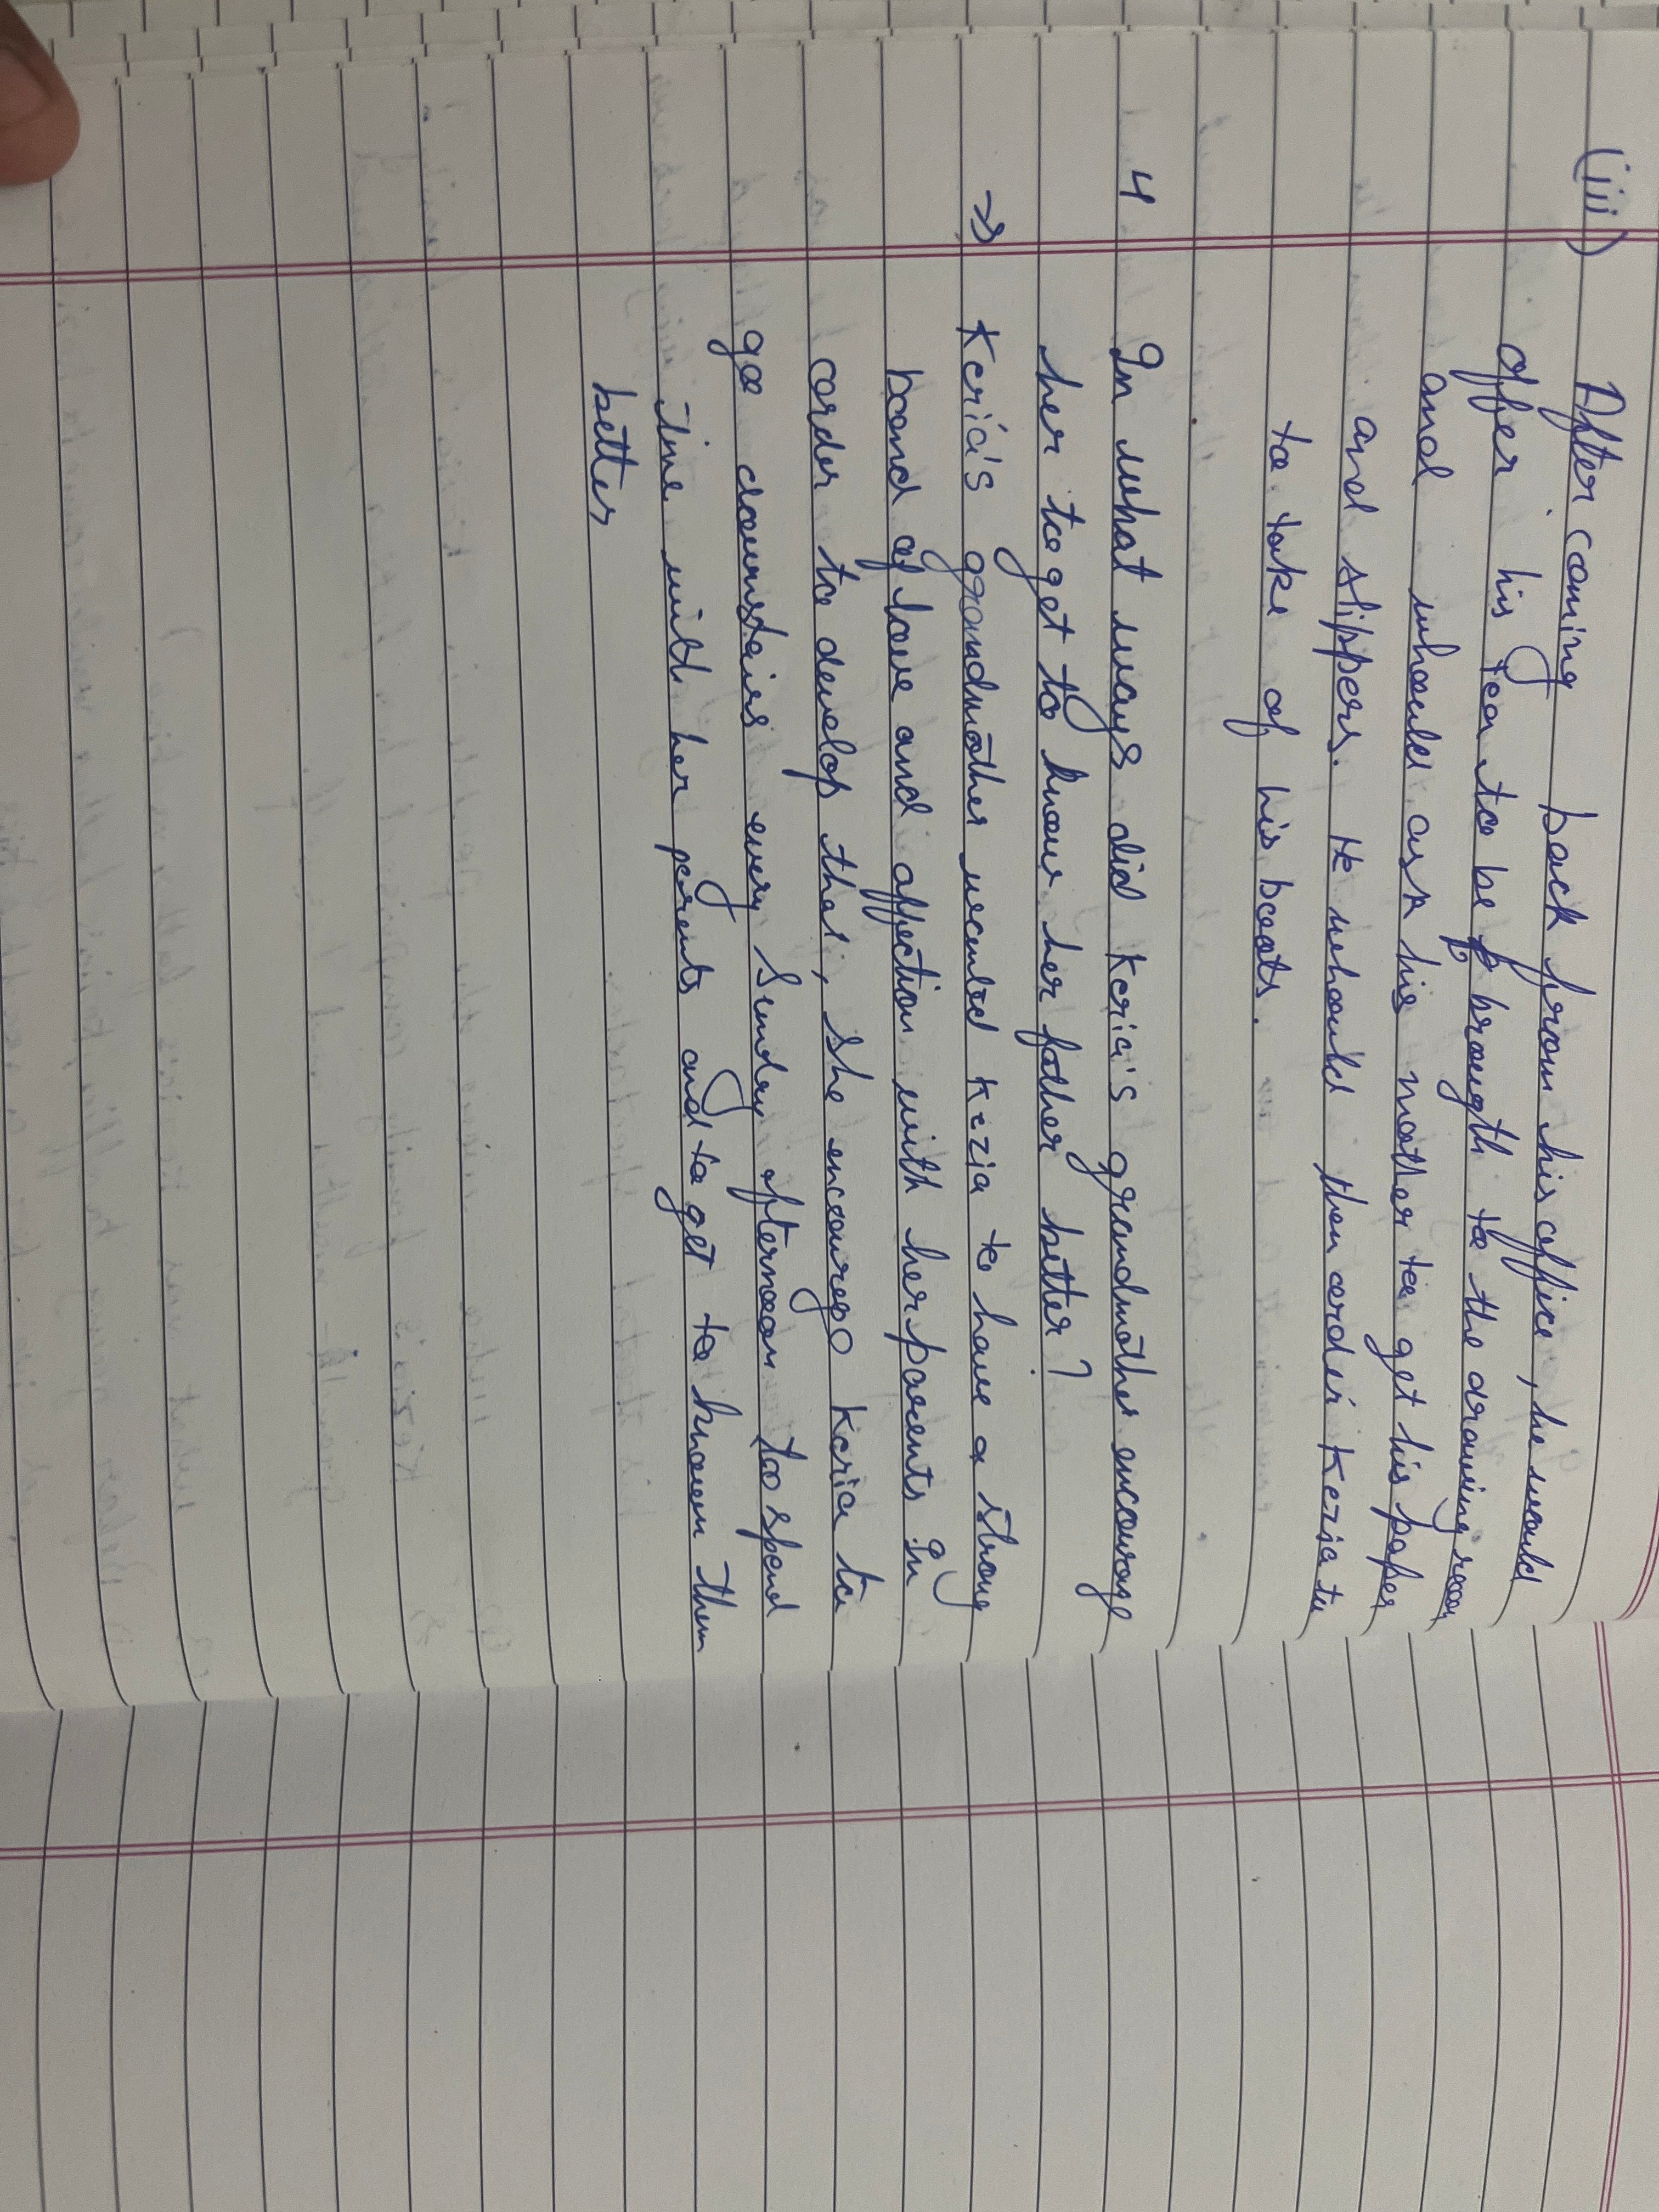 (iii) After coming back from his office, he would
offer his tea to be brougth to the drawing room
and whould ask his mother to get his paper
and slippers. He whould then order Kezia to
to take of his boots.
4 In what ways did Keria's grandmother encourage
her to get to know her father better?
→ Keria's grandmother wanted Kezia to have a strong
bond of love and affection with her parents In
order to develop that, she encourage Keria to
go downstairs every Sunday afternoon to spend
time with her perents and to get to known them
better